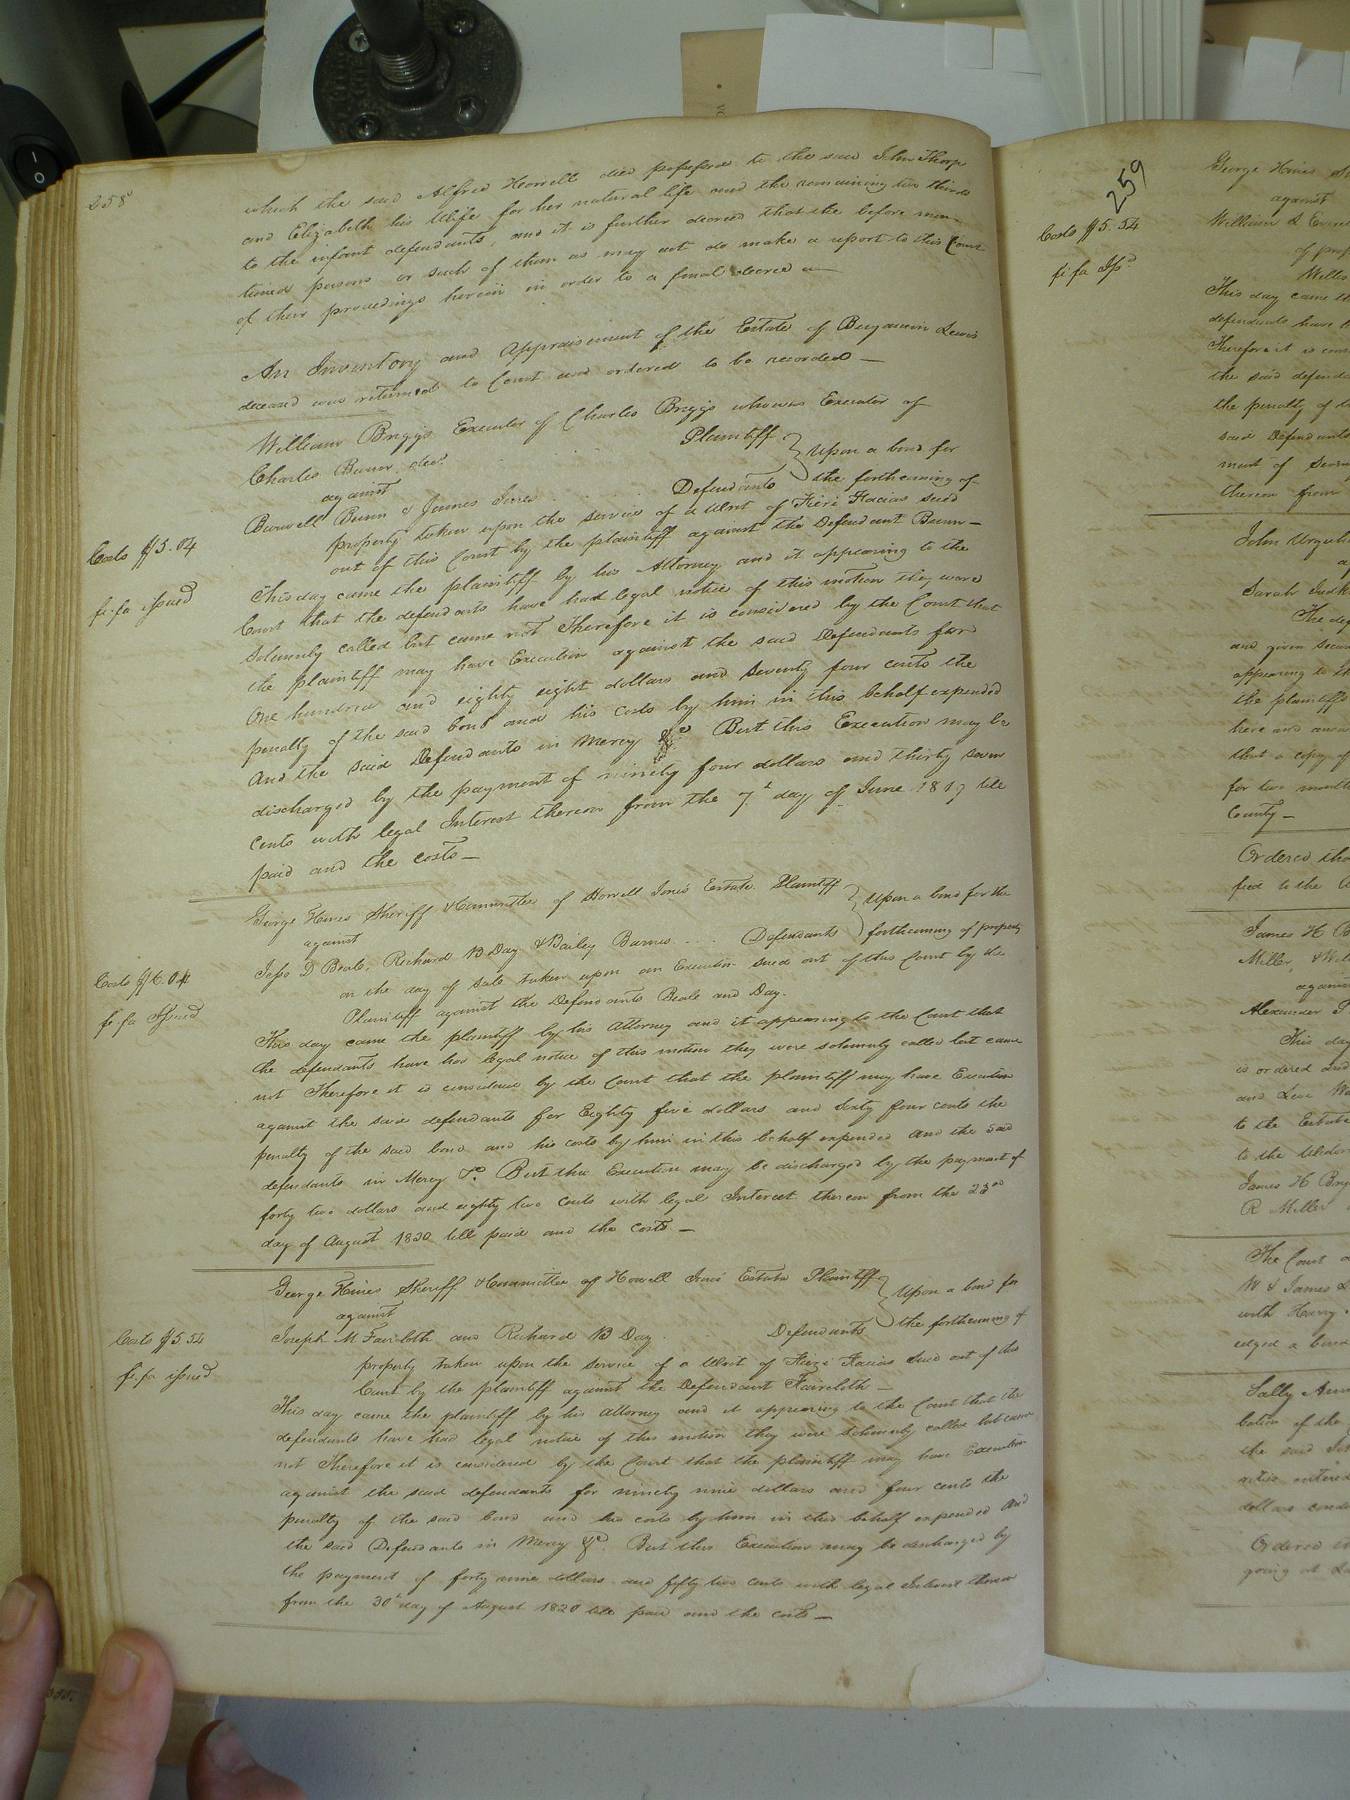 258
which the said Alfred Howell died possessed to the said John Thorp
and Elizabeth his Wife for her natural life and the remaining two thirds
to the infant defendants, and it is further decreed that the before men-
tioned persons or such of them as may act do make a report to this Court
of their proceedings herein in order to a final decree
An Inventory and Appraisement of the Estate of Benjamin Lewis
deceased was returned to Court and ordered to be recorded —
William Briggs Executor of Charles Briggs who was Executor of
Charles Bunn decd. Plaintiff
against
Burwell Bunn & James Jones Defendants
Upon a bond for
the forthcoming of
property taken upon the service of a Writ of Fieri Facias sued
out of this Court by the plaintiff against the Defendant Bunn —
Costs $5.04
fi. fa issued
This day came the plaintiff by his Attorney and it appearing to the
Court that the defendants have had legal notice of this motion they were
solemnly called but came not Therefore it is considered by the Court that
the plaintiff may have Execution against the said Defendants for
One hundred and eighty eight dollars and seventy four cents the
penalty of the said bond and his costs by him in this behalf expended
And the said Defendants in Mercy &c But this Execution may be
discharged by the payment of ninety four dollars and thirty seven
cents with legal Interest thereon from the 7th day of June 1817 till
paid and the costs —
George Hines Sheriff & Committee of Howell Jones Estate Plaintiff
against
Jesse D Beale, Richard B Day & Bailey Barnes Defendants
Upon a bond for the
forthcoming of property
on the day of sale taken upon an Execution sued out of this Court by the
Plaintiff against the Defendants Beale and Day.
Costs $6.04
fi. fa Issued
This day came the plaintiff by his Attorney and it appearing to the Court that
the defendants have had legal notice of this motion they were solemnly called but came
not Therefore it is considered by the Court that the plaintiff may have Execution
against the said defendants for Eighty five dollars and Sixty four cents the
penalty of the said bond and his costs by him in this behalf expended And the said
defendants in Mercy &c. But this Execution may be discharged by the payment of
forty two dollars and eighty two cents with legal Interest thereon from the 23rd
day of August 1820 till paid and the costs —
George Hines Sheriff & Committee of Howell Jones Estate Plaintiff
against
Joseph M Faircloth and Richard B Day Defendants
Upon a bond for
the forthcoming of
property taken upon the service of a Writ of Fieri Facias sued out of this
Court by the plaintiff against the Defendant Faircloth —
Costs $5.54
fi. fa issued
This day came the plaintiff by his Attorney and it appearing to the Court that the
defendants have had legal notice of this motion they were solemnly called but came
not Therefore it is considered by the Court that the plaintiff may have Execution
against the said defendants for ninety nine dollars and four cents the
penalty of the said bond and his costs by him in this behalf expended And
the said Defendants in Mercy &c. But this Execution may be discharged by
the payment of forty nine dollars and fifty two cents with legal Interest thereon
from the 30th day of August 1820 till paid and the costs —
259
Costs $5.54
fi fa Issd
George Hines
against
William
of prop
This day came the
defendants have
Therefore it is con
the said defend
the penalty of t
said Defendants
ment of Seven
thereon from
John
Sarah
The
and given secur
appearing to th
the plaintiffs
here and answ
that a copy of
for two months
County —
Ordered tha
fied to the
James H
Miller, & Wil
against
Alexander P
This day
is ordered and
and Levi
to the Estate
to the
James H Bry
R Miller
The Court
W & James
with Harry
edged a bond
Sally Ann
bation of the
the said
entered
dollars
Ordered
going at